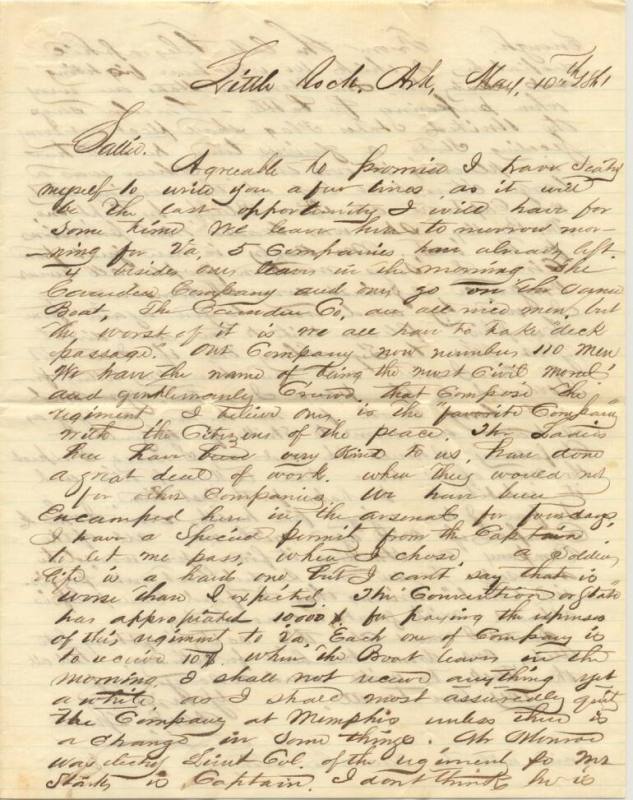 Little Rock, Ark, May, 10th 1861
Sallie.
Agreable to promise I have Seated
myself to write you a few lines as it will
be the last opportunity I will have for
Some time We leave here to morrow mor-
-ning for Va, 5 Companies have already left.
4 besides ours leaves in the morning The
Camden Company and ours go on the Same
Boat, The Camden Co, are all nice men, but
the worst of it is we all have to take "deck
passage." Our Company now number 110 men
We have the name of being the most Civil moral
and gentlemenly Crowd that Compose the
regiment I believe ours is the "favorite Company"
with the Citizens of the peace. The Ladies
here have been very Kind to us, have done
a great deal of work. when they would not
for other Companies. We have been
Encamped here in the arsenal for four days
I have a Special permit from the Captain
to let me pass, when I chose, a Soldiers
life is a hard one, but I cant say that is
worse than I expected. The Convention or State
has appropiated 10000 $ for paying the expenses
of this regiment to Va, Each one of Company is
to receive 10$ when the Boat leaves in the
morning. I shall not receive anything yet
a while as I shall most assuredly quit
the Company at Memphis unless there is
a Change in Some things. Mr Monroe
was elected Lieut Col. of the regiment So Mr
Starks is Captain. I dont think he is